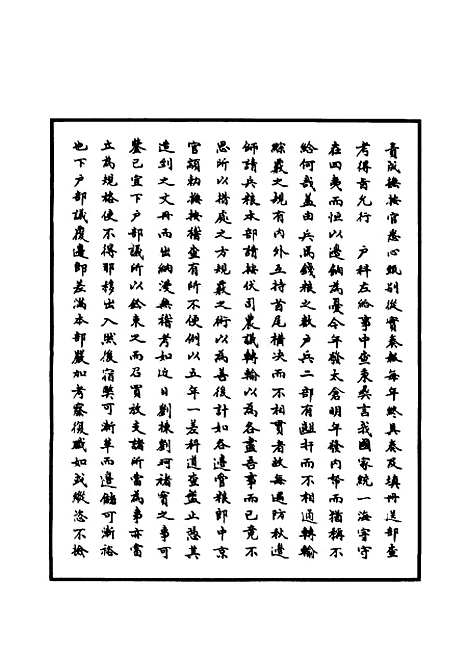 責成撫按官悉心甄別從實奏報每年終具奏及填冊送部查
考得旨允行　戶科左給事中查秉彝言我國家統一海宇守
在四夷而恒以邊餉為憂今年發太倉明年發內帑而猶稱不
給何哉蓋由兵馬錢糧之數戶兵二部有齟扞而不相通轉輸
賑裁之規有內外互持首尾橫決而不相貫者故每遇防秋邊
師請兵糧本部請按伏司農議轉輸以為各盡吾事而已竟不
思所以措處之方規裁之術以為善後計如各邊管糧郎中京
官領勑撫按稽查有所不便例以五年一差科道查盤止憑其
造到之文冊而出納漫無稽考如近日劉棟劉珂褚寶之事可
鑒已宜下戶部議所以鈐束之而召買放支諸所當為事亦當
立為規格使不得那移出入然後宿獘可漸革而邊儲可漸裕
也下戶部議覆邊郎差滿本部嚴加考察復職如或縱恣不檢